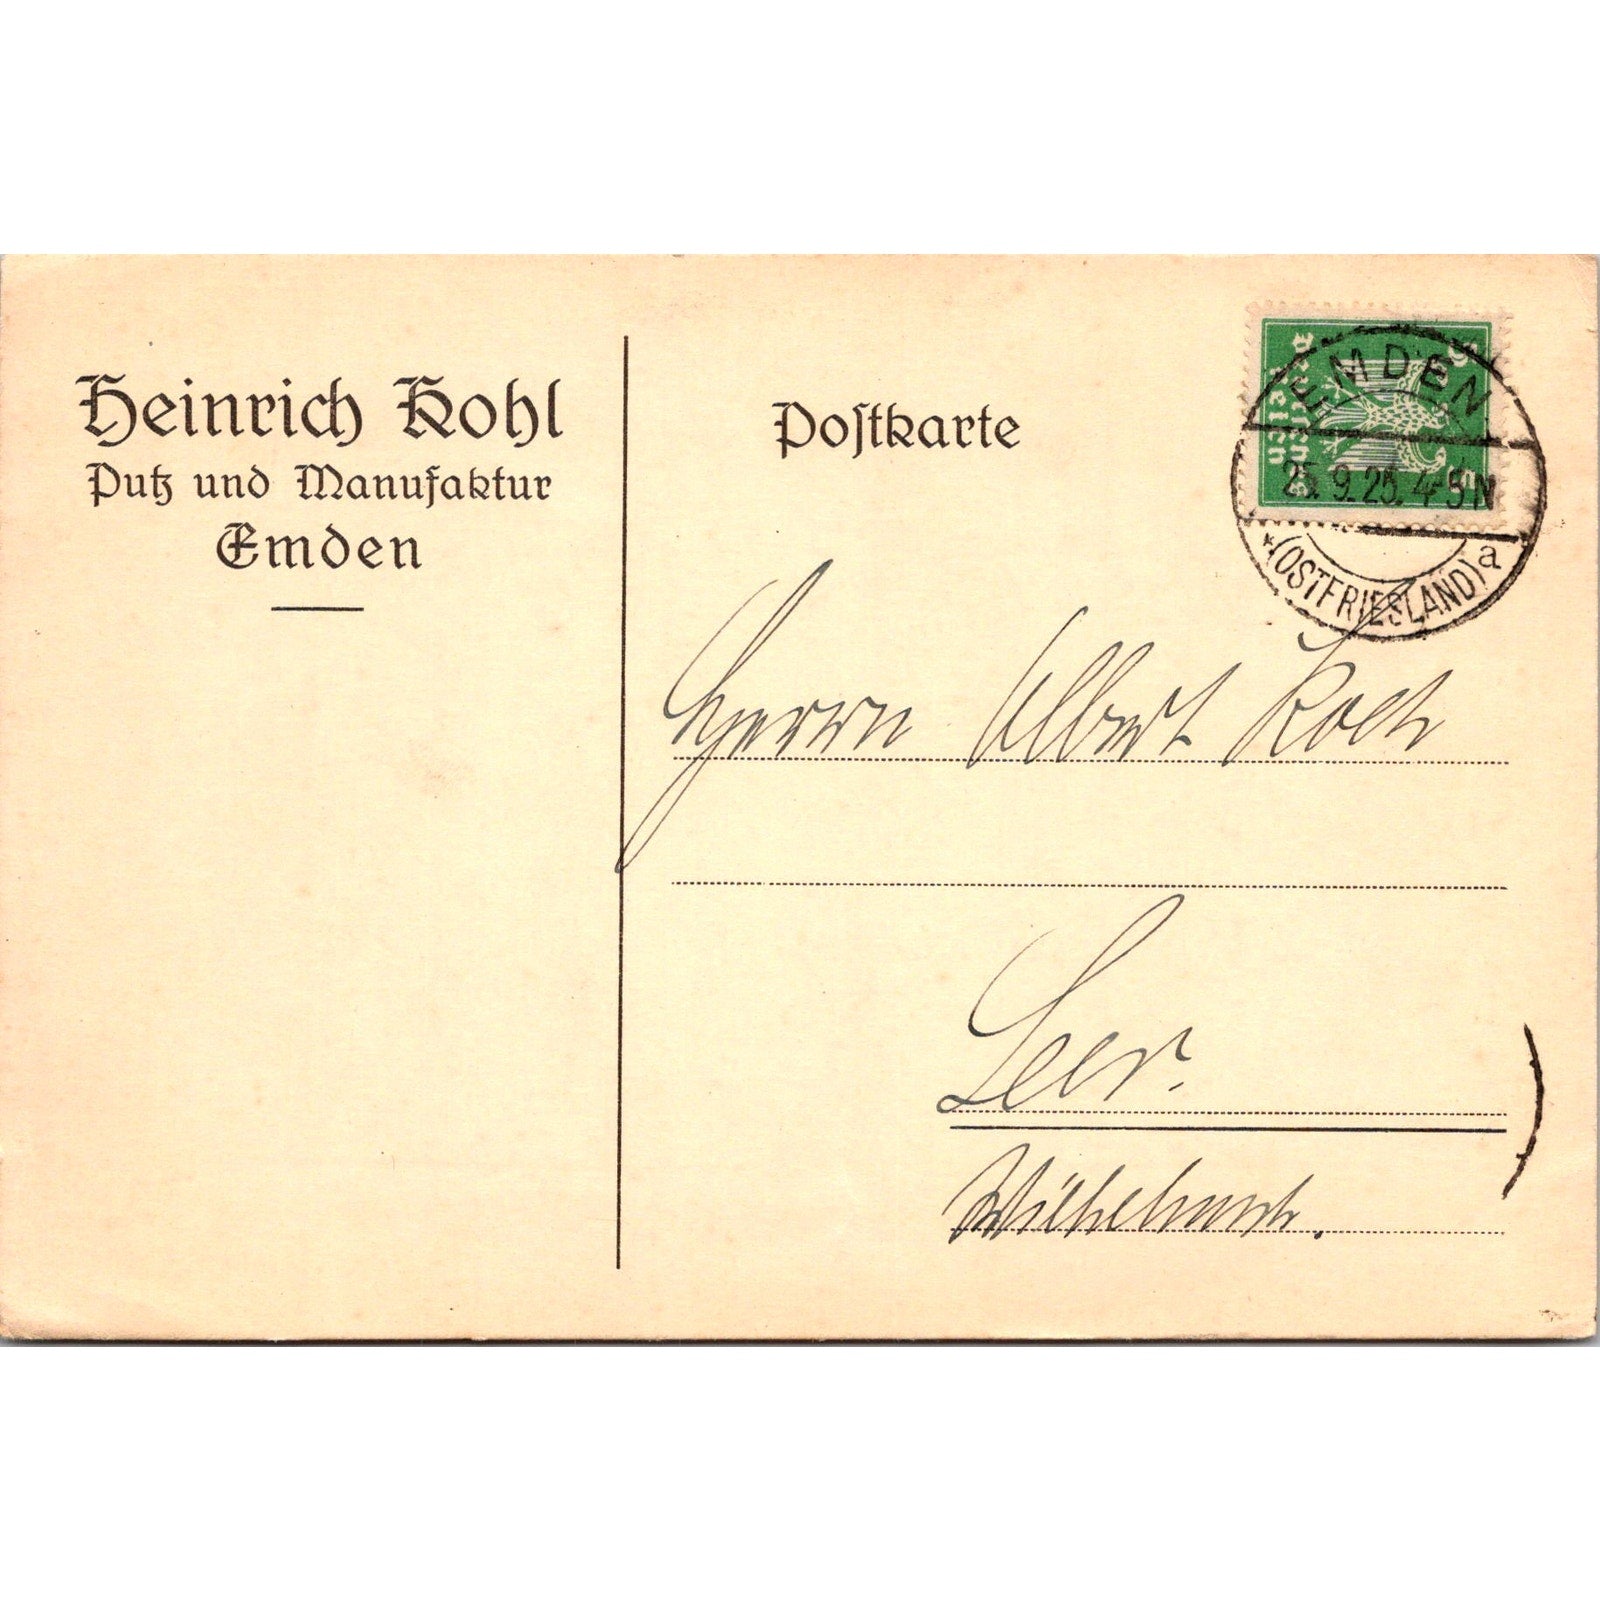 Heinrich Kohl
Putz und Manufaktur
Emden
Postkarte
Deutsches Reich
5
EMDEN
25.9.25. 4-5N
*(OSTFRIESLAND) a
Herrn Albert Koch
Leer.
Wilhelmstr.